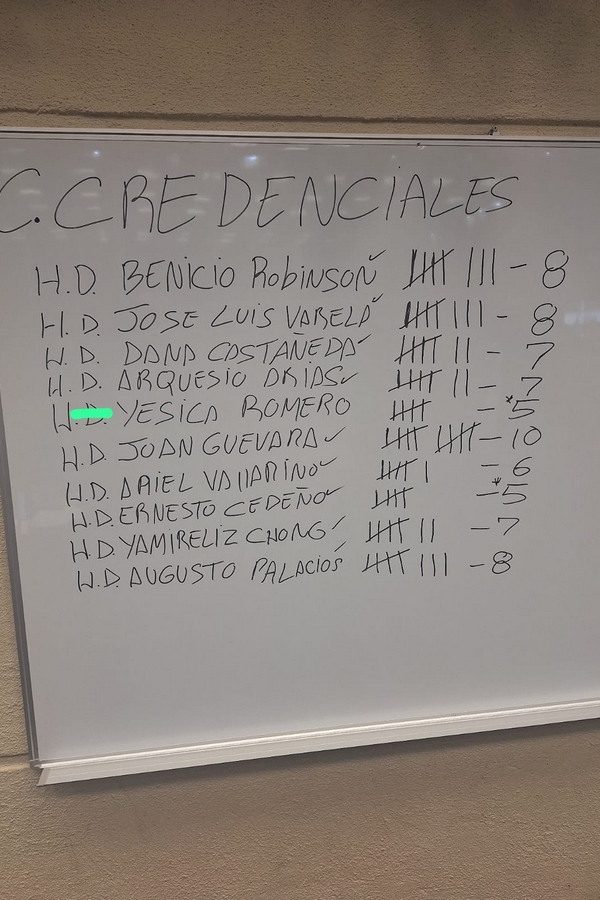 C. CREDENCIALES
H.D. BENICIO RobINSON ✓ 卌 III - 8
H.D. JOSE LUIS VARELA ✓ 卌 III - 8
H.D. DANA CASTAÑEDA ✓ 卌 II - 7
H.D. ARQUESIO ARIAS ✓ 卌 II - 7
H.D. YESICA ROMERO 卌 - *5
H.D. JUAN GUEVARA ✓ 卌 卌 - 10
H.D. ARIEL VALLARINO ✓ 卌 I - 6
H.D. ERNESTO CEDEÑO ✓ 卌 - *5
H.D. YAMIRELIZ CHONG ✓ 卌 II - 7
H.D. AUGUSTO PALACIOS ✓ 卌 III - 8